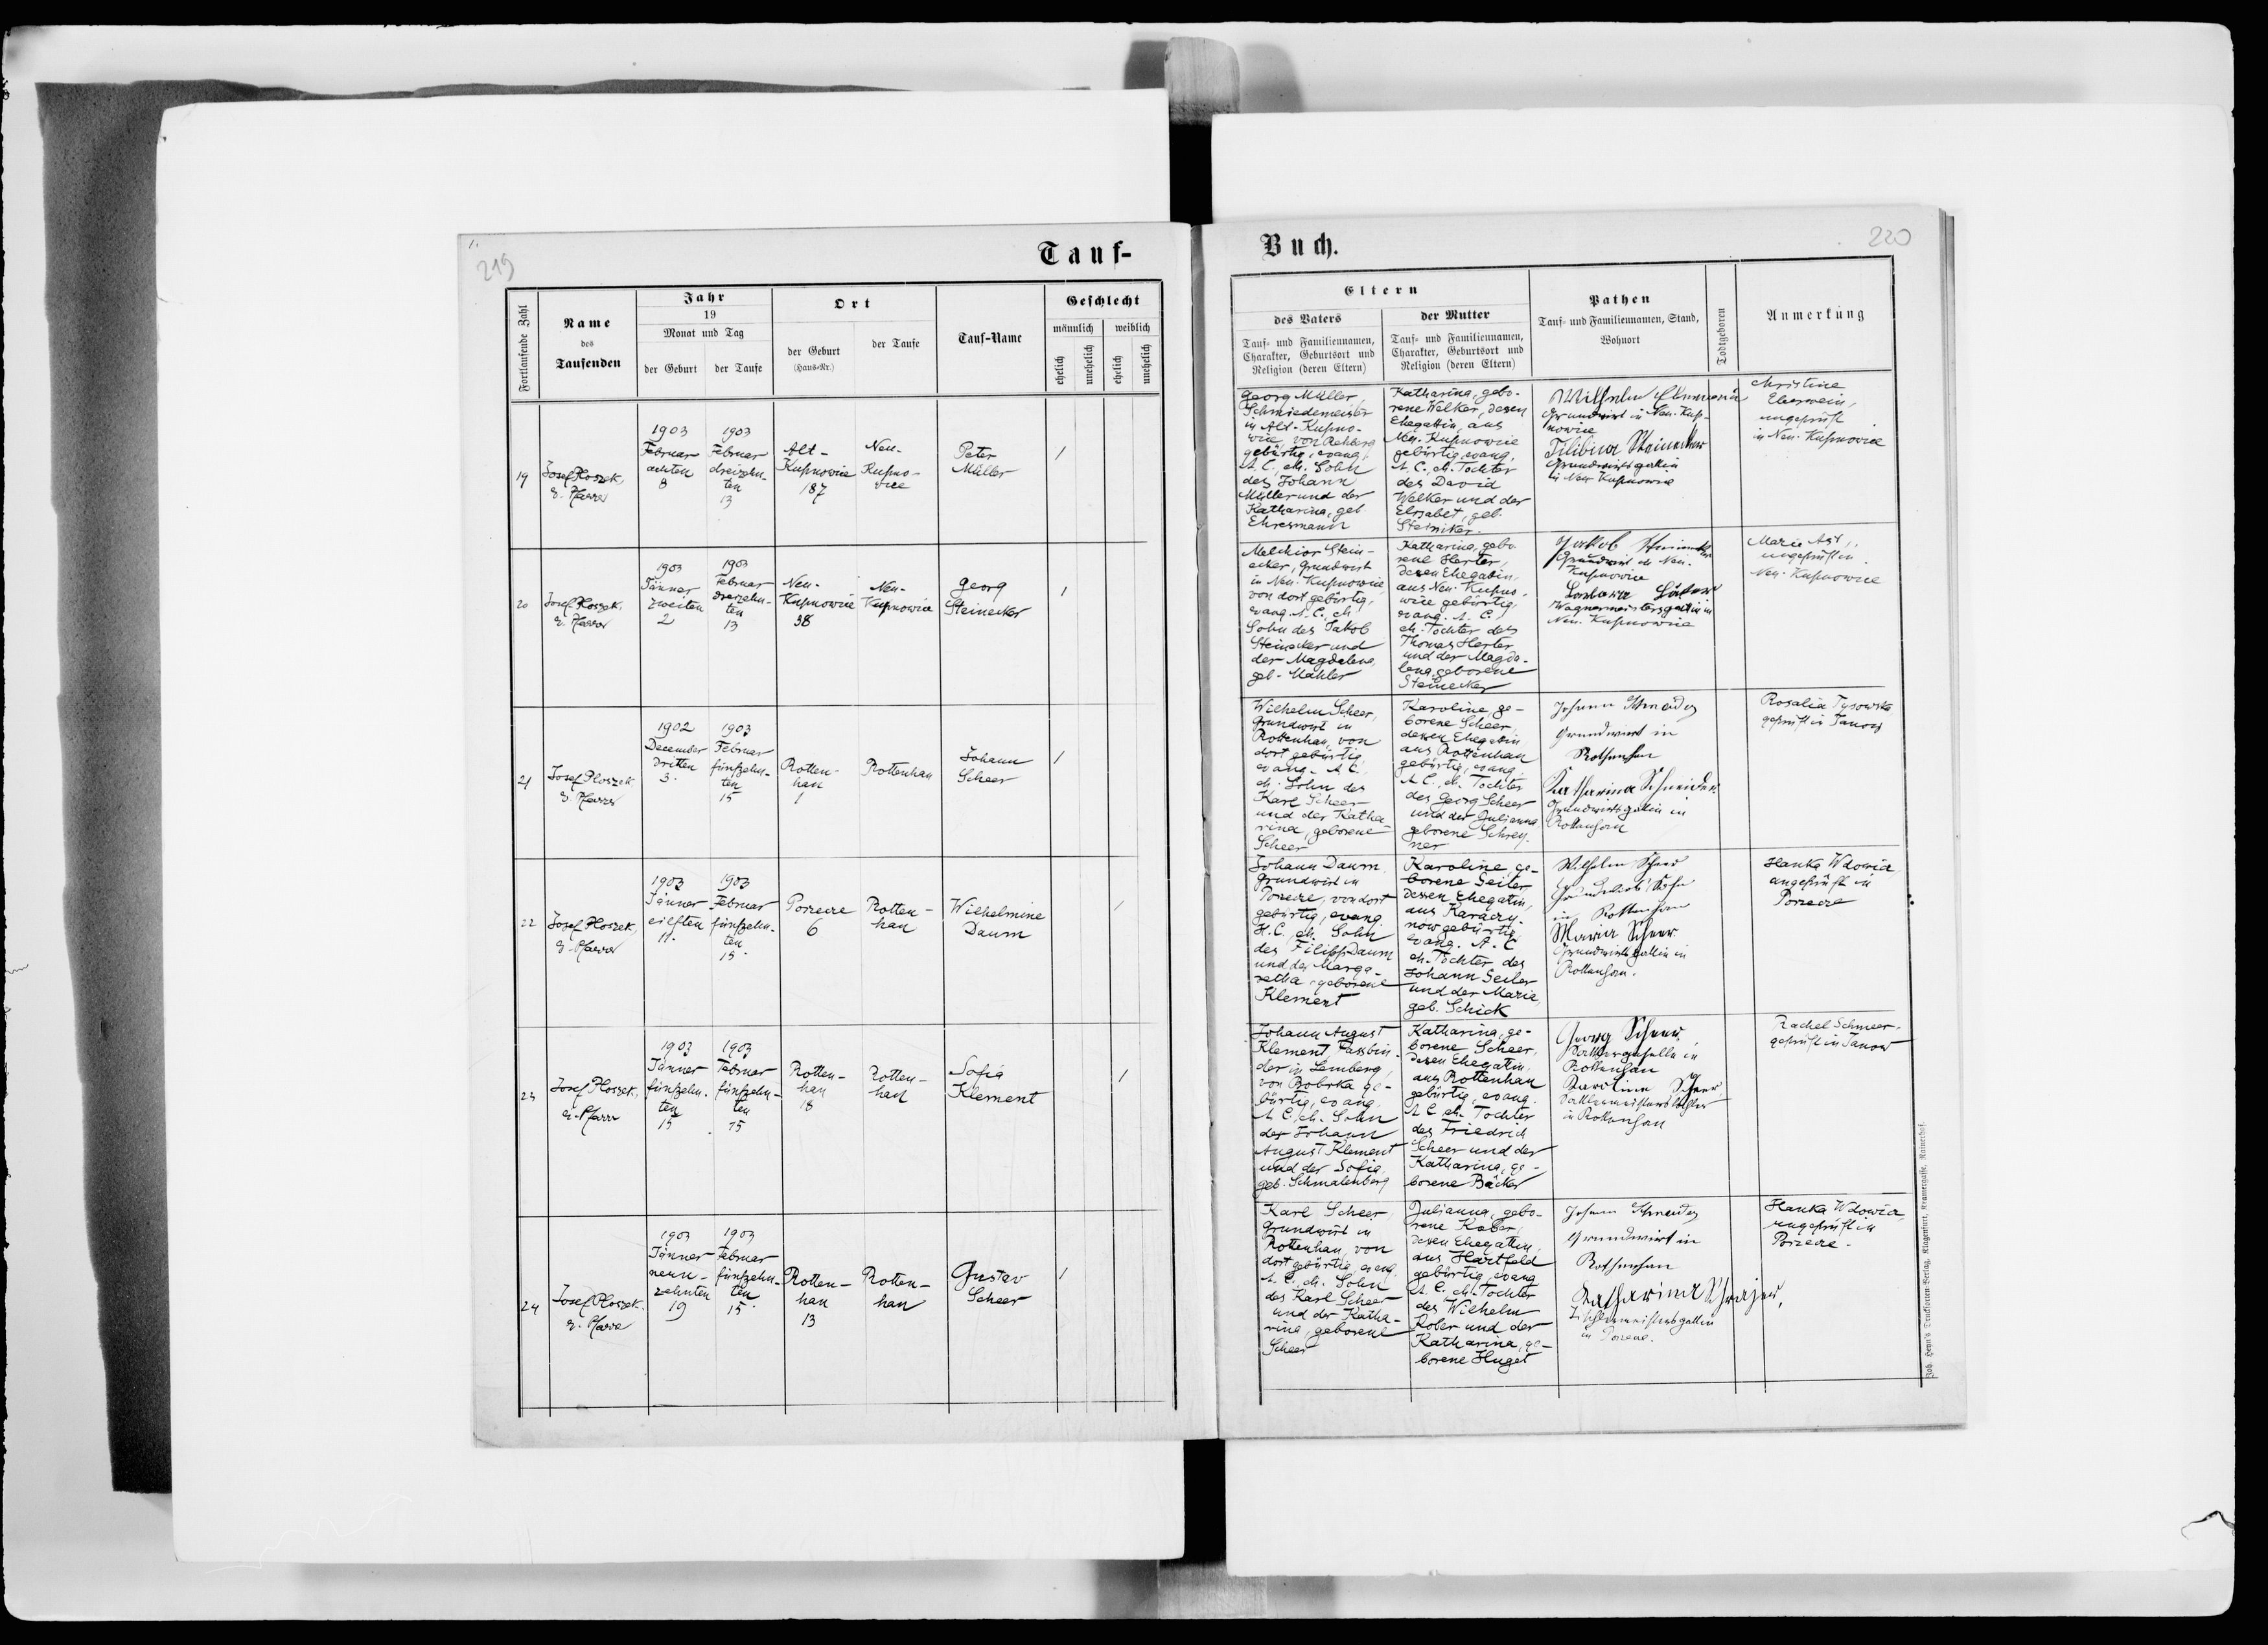 219
Tauf-
Fortlaufende Zahl
Name
des
Taufenden
Jahr
19
Monat und Tag
der Geburt
der Taufe
Ort
der Geburt
(Haus-Nr.)
der Taufe
Tauf-Name
Geschlecht
männlich
weiblich
ehelich
unehelich
ehelich
unehelich
19
Josef Ploszek,
e. Pfarrer
1903
Februar
achten
8
1903
Februar
dreizehn-
ten
13
Alt-
Kupnowice
187
Neu-
Kupno-
wice
Peter
Müller
/
20
Josef Ploszek,
e. Pfarrer
1903
Jänner
zweiten
2
1903
Februar
dreizehn-
ten
13
Neu-
Kupnowice
38
Neu-
Kupnowice
Georg
Steinecker
/
21
Josef Ploszek,
e. Pfarrer
1902
December
dritten
3.
1903
Februar
fünfzehn-
ten
15
Rotten-
han
1
Rottenhan
Johann
Scheer
/
22
Josef Ploszek,
e. Pfarrer
1903
Jänner
eilften
11.
1903
Februar
fünfzehn-
ten
15.
Porzecze
6
Rotten-
han
Wilhelmine
Daum
/
23
Josef Ploszek,
e. Pfarrer
1903
Jänner
fünfzehn-
ten
15
1903
Februar
fünfzehn-
ten
15
Rotten-
han
18
Rotten-
han
Sofia
Klement
/
24
Josef Ploszek.
e. Pfarrer
1903
Jänner
neun-
zehnten
19
1903
Februar
fünfzehn-
ten
15.
Rotten-
han
13
Rotten-
han
Gustav
Scheer
/
Buch.
220
Eltern
des Vaters
Tauf- und Familiennamen,
Charakter, Geburtsort und
Religion (deren Eltern)
der Mutter
Tauf- und Familiennamen,
Charakter, Geburtsort und
Religion (deren Eltern)
Pathen
Tauf- und Familiennamen, Stand,
Wohnort
Todtgeboren
Anmerkung
Georg Müller,
Schmiedemeister
in Alt-Kupno-
wice, von Rehberg
gebürtig, evang.
A. C., eh. Sohn
des Johann
Müller und der
Katharina, geb
Ehresmann
Katharina, gebo-
rene Welker, dessen
Ehegattin, aus
Neu-Kupnowice
gebürtig, evang.
A. C., eh. Tochter
des David
Welker und der
Elisabet, geb.
Steiniker.
Wilhelm
Grundwirt in Neu-Kup-
nowice
Filibina Steinecker
Grundwirtsgattin
in Neu Kupnowice
Christine
Eberwein,
ungeprüft
in Neu-Kupnowice
Melchior Stein-
ecker, Grundwirt
in Neu-Kupnowice,
von dort gebürtig,
evang. A. C., eh.
Sohn des Jakob
Steinecker und
der Magdalena,
geb. Mahler
Katharina, gebo-
rene Herter,
dessen Ehegattin,
aus Neu-Kupno-
wice gebürtig,
evang. A. C.,
eh. Tochter des
Thomas Herter
und der Magda-
lena, geborene
Steinecker
Jakob
Grundwirt in Neu-
Kupnowice
Wagnermeistersgattin in
Neu-Kupnowice
Marie Ast,
ungeprüft in
Neu-Kupnowice
Wilhelm Scheer,
Grundwirt in
Rottenhan, von
dort gebürtig,
evang. A. C.,
eh. Sohn des
Karl Scheer
und der Katha-
rina, geborene
Scheer
Karoline, ge-
borene Scheer,
dessen Ehegattin
aus Rottenhan
gebürtig, evang.
A. C., eh. Tochter
des Georg Scheer
und der Julianna
geborene Schrey-
ner
Johann Schneider
Grundwirt in
Rothenhan
Katharina Schneider
Grundwirtsgattin in
Rottenhan
Rosalia Tysowska
geprüft in Janow
Johann Daum,
Grundwirt in
Porzecze, von dort
gebürtig, evang.
H. C., eh. Sohn
des Filipp Daum
und der Marga-
retha, geborene
Klement
Karoline, ge-
borene Seiler
dessen Ehegattin,
aus Karaczy-
now gebürtig,
evang. A. C.
eh. Tochter des
Johann Seiler
und der Marie,
geb. Schick
Wilhelm Scheer
in Rottenhan
Maria Scheer
Grundwirtsgattin in
Rottenhan.
Hanka Wdowia
ungeprüft in
Porzecze
Johann August
Klement, Fassbin-
der in Lemberg,
von Bobrka ge-
bürtig, evang.
A. C., eh. Sohn
des Johann
August Klement
und der Sofia,
geb. Schmalenberg
Katharina, ge-
borene Scheer,
dessen Ehegattin,
aus Rottenhan
gebürtig, evang.
A. C. eh. Tochter
des Friedrich
Scheer und der
Katharina, ge-
borene Bäcker
Georg Scheer
Sattlergeselle in
Rottenhan
Karolina Scheer
Sattlermeisterstochter
in Rottenhan
Rachel Schmeer
geprüft in Janow
Karl Scheer,
Grundwirt in
Rottenhan, von
dort gebürtig, evang.
A. C., eh. Sohn
des Karl Scheer
und der Katha-
rina, geborene
Scheer
Julianna, gebo-
rene Kober,
dessen Ehegattin,
aus Hartfeld
gebürtig, evang.
A. C., eh. Tochter
des Wilhelm
Kober und der
Katharina, ge-
borene Huget
Johann Schneider
Grundwirt in
Rothenhan
Katharina
Tischlermeistersgattin
in Porzecze.
Hanka Wdowia,
ungeprüft in
Porzecze.
Joh. Heyn's Drucksorten-Verlag, Klagenfurt, Kramergasse, Rainerhof.